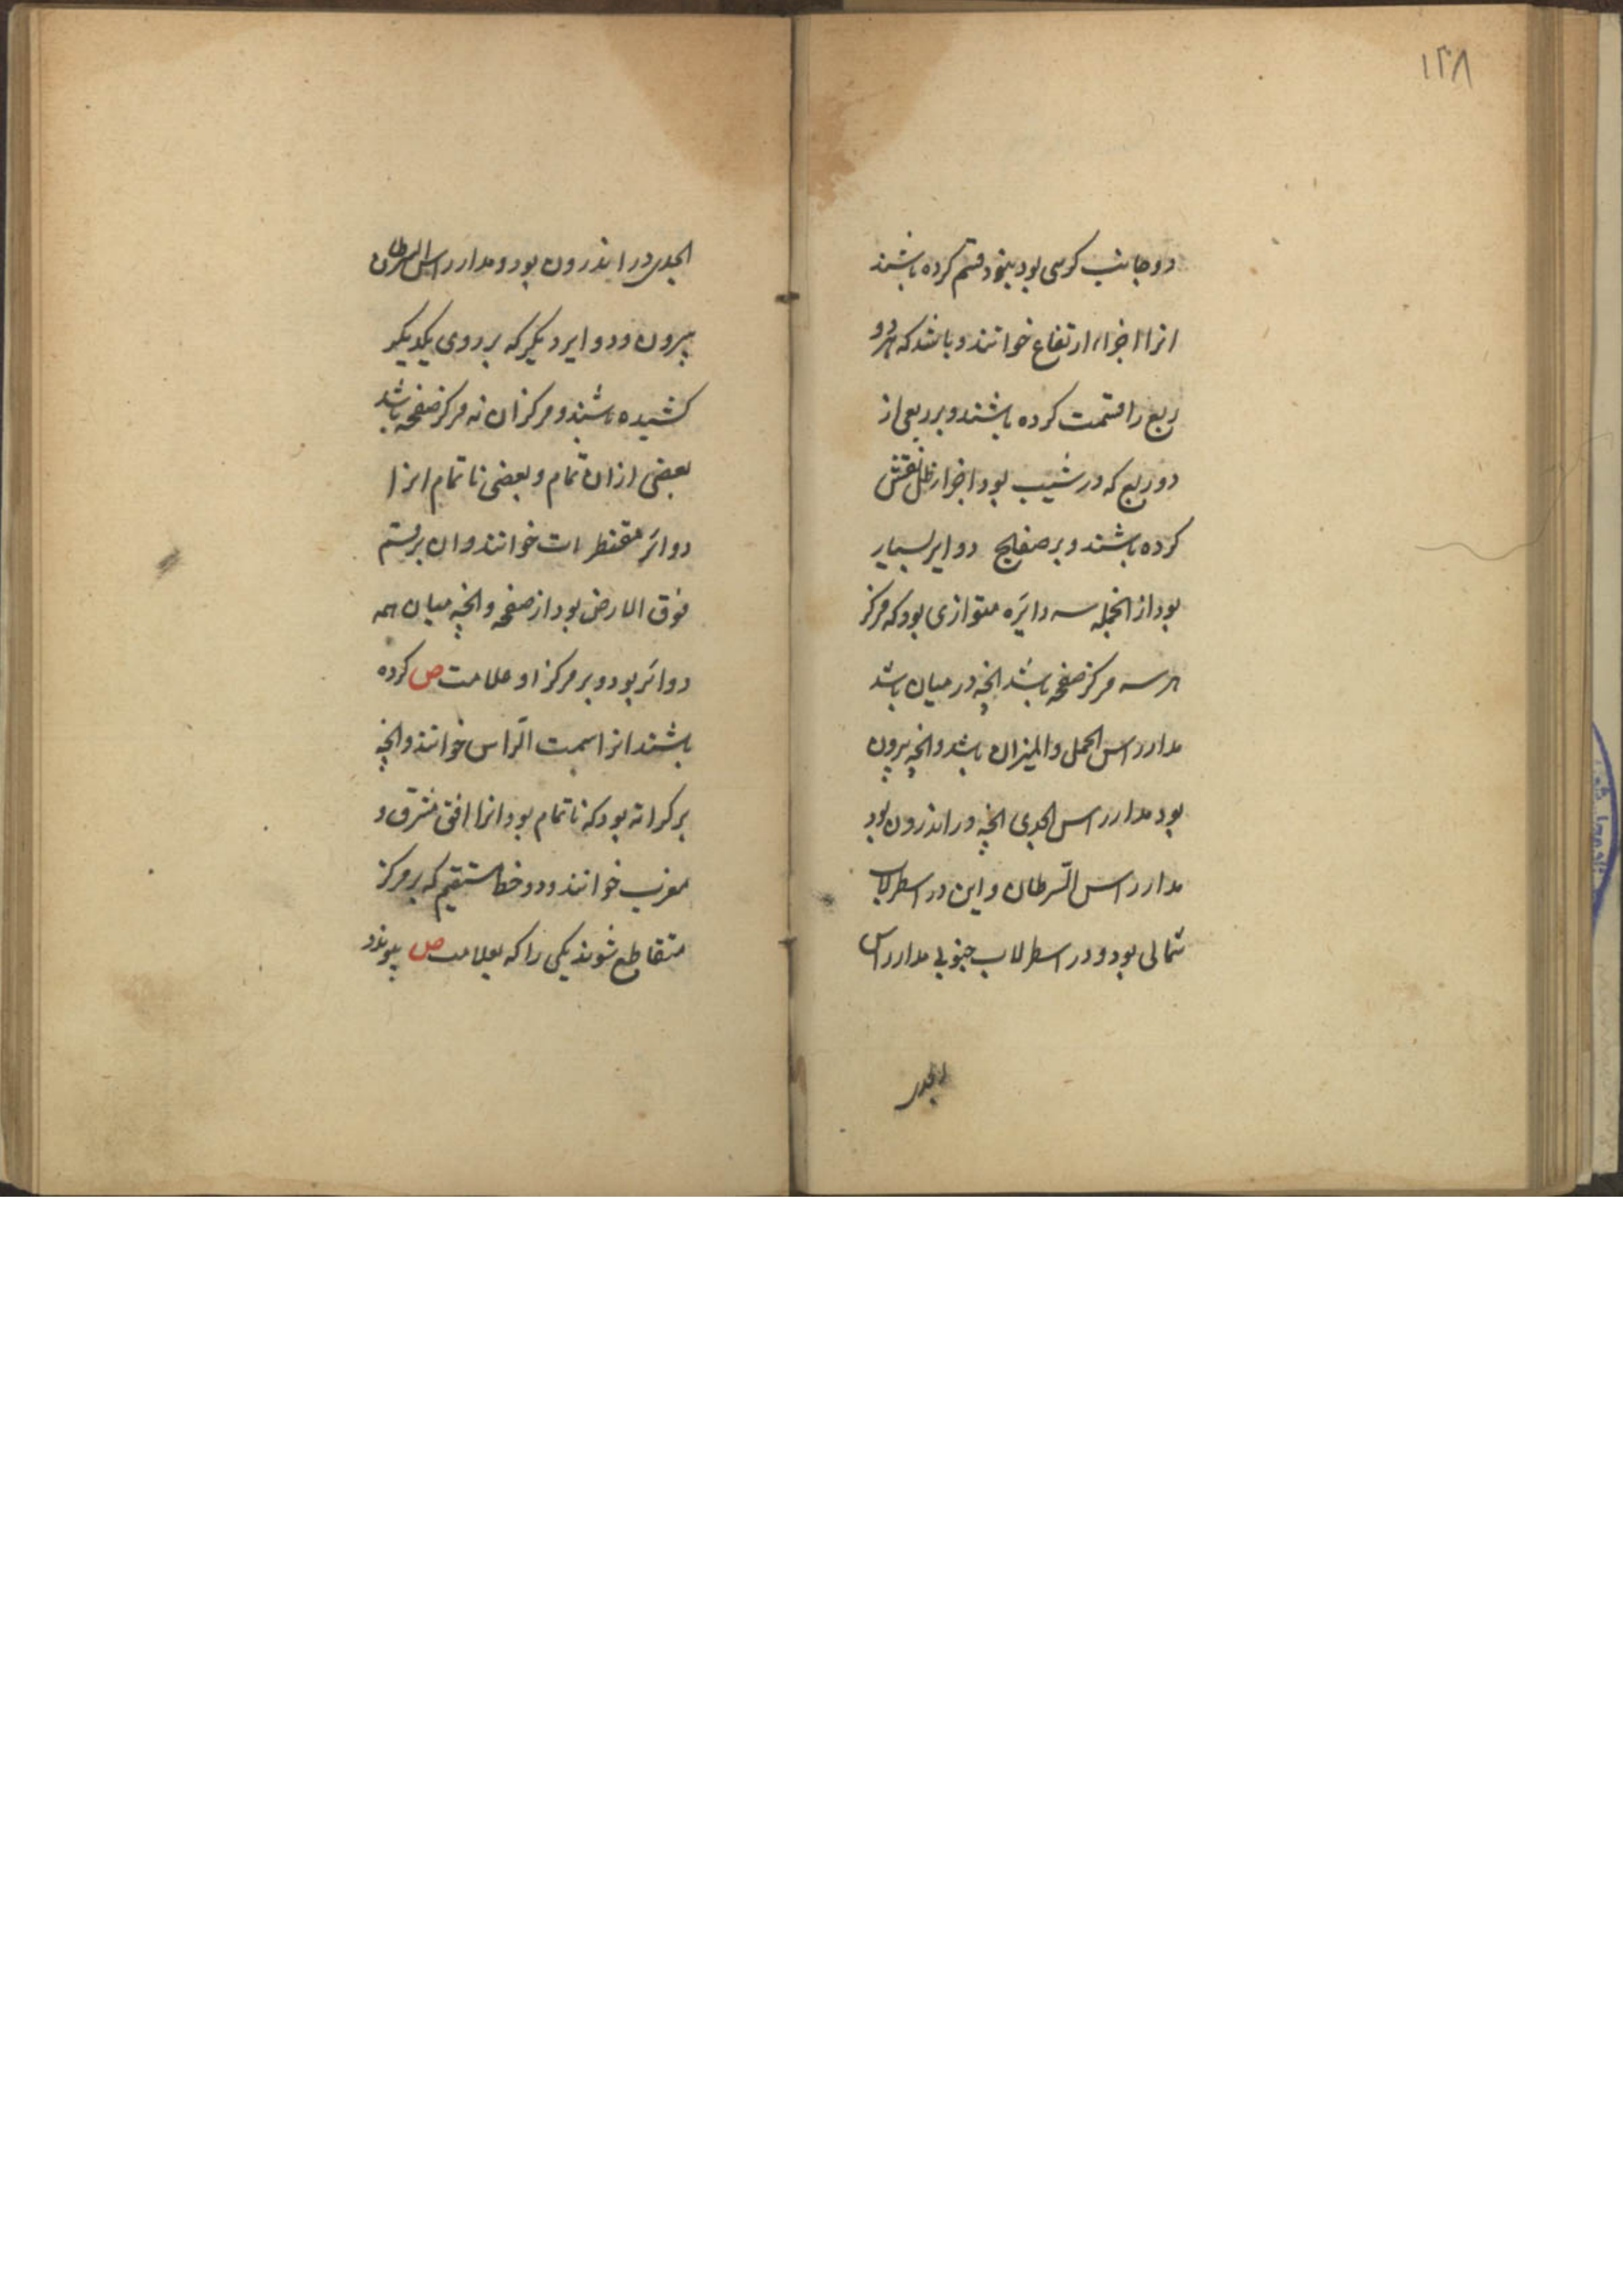 ۱۳۸
دو جانب کرسی بود بنود قسم کرده باشند
انرا اجزاء ارتفاع خوانند و باشد که هر دو
ربع را قسمت کرده باشند و بر ربعی از
دو ربع که در شیب بود اجزا ظل نقش
کرده باشند و بر صفایح دوایر بسیار
بود از انجمله سه دایره متوازی بود که مرکز
هر سه مرکز صفحه باشد انچه در میان باشد
مدار راس الحمل و المیزان باشد و انچه بیرون
بود مدار راس الجدی انچه در اندرون بود
مدار راس السّرطان و این در اسطرلاب
شمالی بود و در اسطرلاب جنوبی مدار راس
الجدی
الجدی در اندرون بود و مدار راس السرطان
بیرون و دوایر دیگر که بر روی یکدیگر
کشیده باشند و مرکز ان نه مرکز صفحه باشد
بعضی از ان تمام و بعضی ناتمام انرا
دوائر مقنطرات خوانند و ان بر قسم
فوق الارض بود از صفحه و انچه میان همه
دوائر بود و بر مرکز او علامت ص کرده
باشند انرا سمت الرّاس خوانند و انچه
بر کرانه بود که ناتمام بود انرا افق مشرق و
مغرب خوانند و دو خط مستقیم که بر مرکز
متقاطع شوند یکی را که بعلامت ص پیوندد